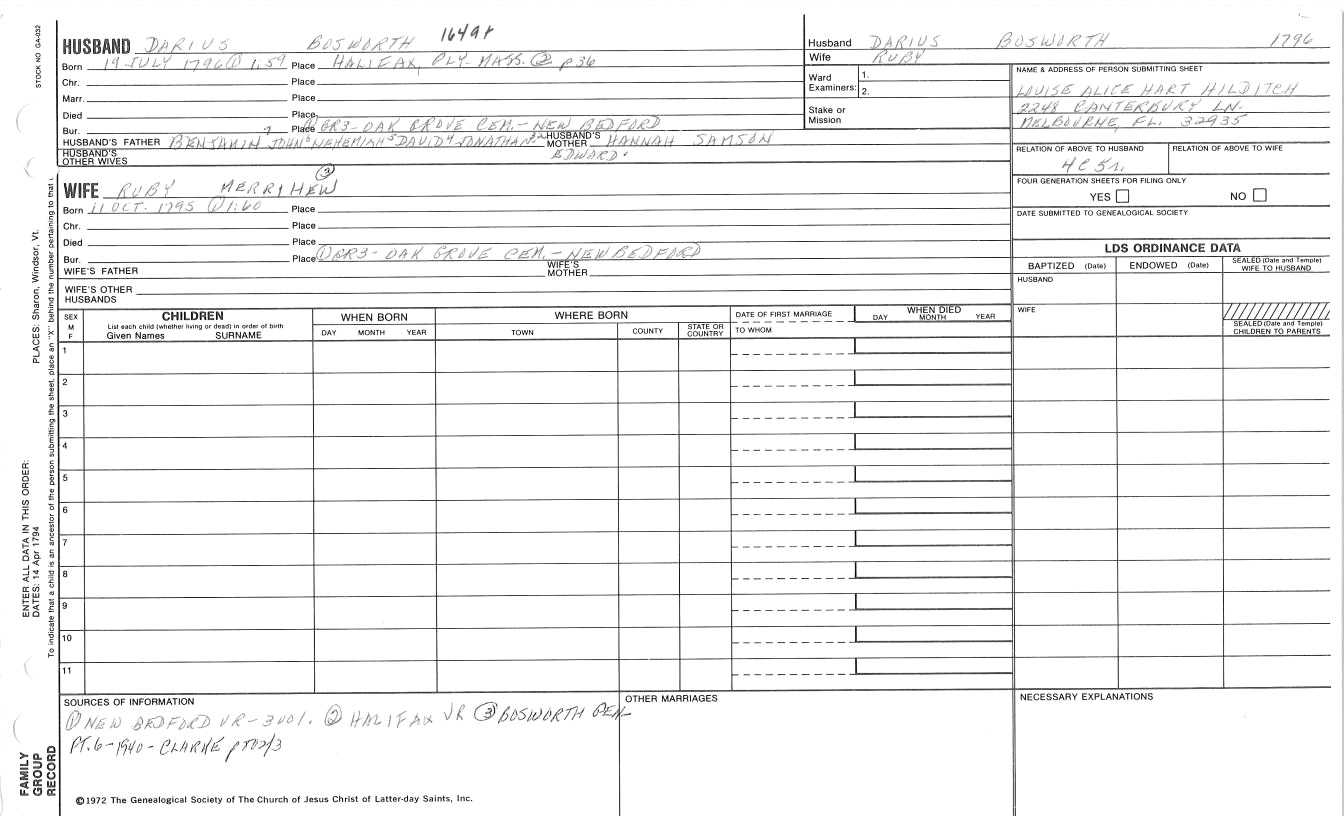 STOCK NO GA-032
HUSBAND DARIUS BOSWORTH
Born 19 JULY 1796 ① 1.59 Place HALIFAX, PLY. MASS. ② p36
Chr. Place
Marr. Place
Died Place
Bur. Place ① GR3- OAK GROVE CEM. - NEW BEDFORD
HUSBAND'S FATHER BENJAMIN 7 JOHN 6 NEHEMIAH 5 DAVID 4 JONATHAN 3 2 EDWORD 1 HUSBAND'S MOTHER HANNAH SAMSON
HUSBAND'S OTHER WIVES
Husband DARIUS BOSWORTH 1796
Wife RUBY
Ward Examiners: 1.
2.
Stake or Mission
NAME & ADDRESS OF PERSON SUBMITTING SHEET
LOUISE ALICE HART HILDITCH
2248 CANTERBURY LN.
MELBOURNE, FL. 32935
RELATION OF ABOVE TO HUSBAND RELATION OF ABOVE TO WIFE
4C5r.
FOUR GENERATION SHEETS FOR FILING ONLY
YES NO
DATE SUBMITTED TO GENEALOGICAL SOCIETY
WIFE RUBY MERRIHEW ③
Born 11 OCT. 1795 ① 1:60 Place
Chr. Place
Died Place
Bur. Place ① GR3- OAK GROVE CEM. - NEW BEDFORD
WIFE'S FATHER WIFE'S MOTHER
WIFE'S OTHER HUSBANDS
LDS ORDINANCE DATA
BAPTIZED (Date) ENDOWED (Date) SEALED (Date and Temple) WIFE TO HUSBAND
HUSBAND
WIFE
SEALED (Date and Temple) CHILDREN TO PARENTS
SEX M F CHILDREN WHEN BORN WHERE BORN DATE OF FIRST MARRIAGE WHEN DIED
List each child (whether living or dead) in order of birth
Given Names SURNAME DAY MONTH YEAR TOWN COUNTY STATE OR COUNTRY TO WHOM DAY MONTH YEAR
1
2
3
4
5
6
7
8
9
10
11
SOURCES OF INFORMATION
① NEW BEDFORD VR-3v01. ② HALIFAX VR ③ BOSWORTH GEN-
PT.6-1940-CLARKE
OTHER MARRIAGES
NECESSARY EXPLANATIONS
©1972 The Genealogical Society of The Church of Jesus Christ of Latter-day Saints, Inc.
FAMILY GROUP RECORD
ENTER ALL DATA IN THIS ORDER:
DATES: 14 Apr 1794
PLACES: Sharon, Windsor, Vt.
To indicate that a child is an ancestor of the person submitting the sheet, place an "X" behind the number pertaining to that